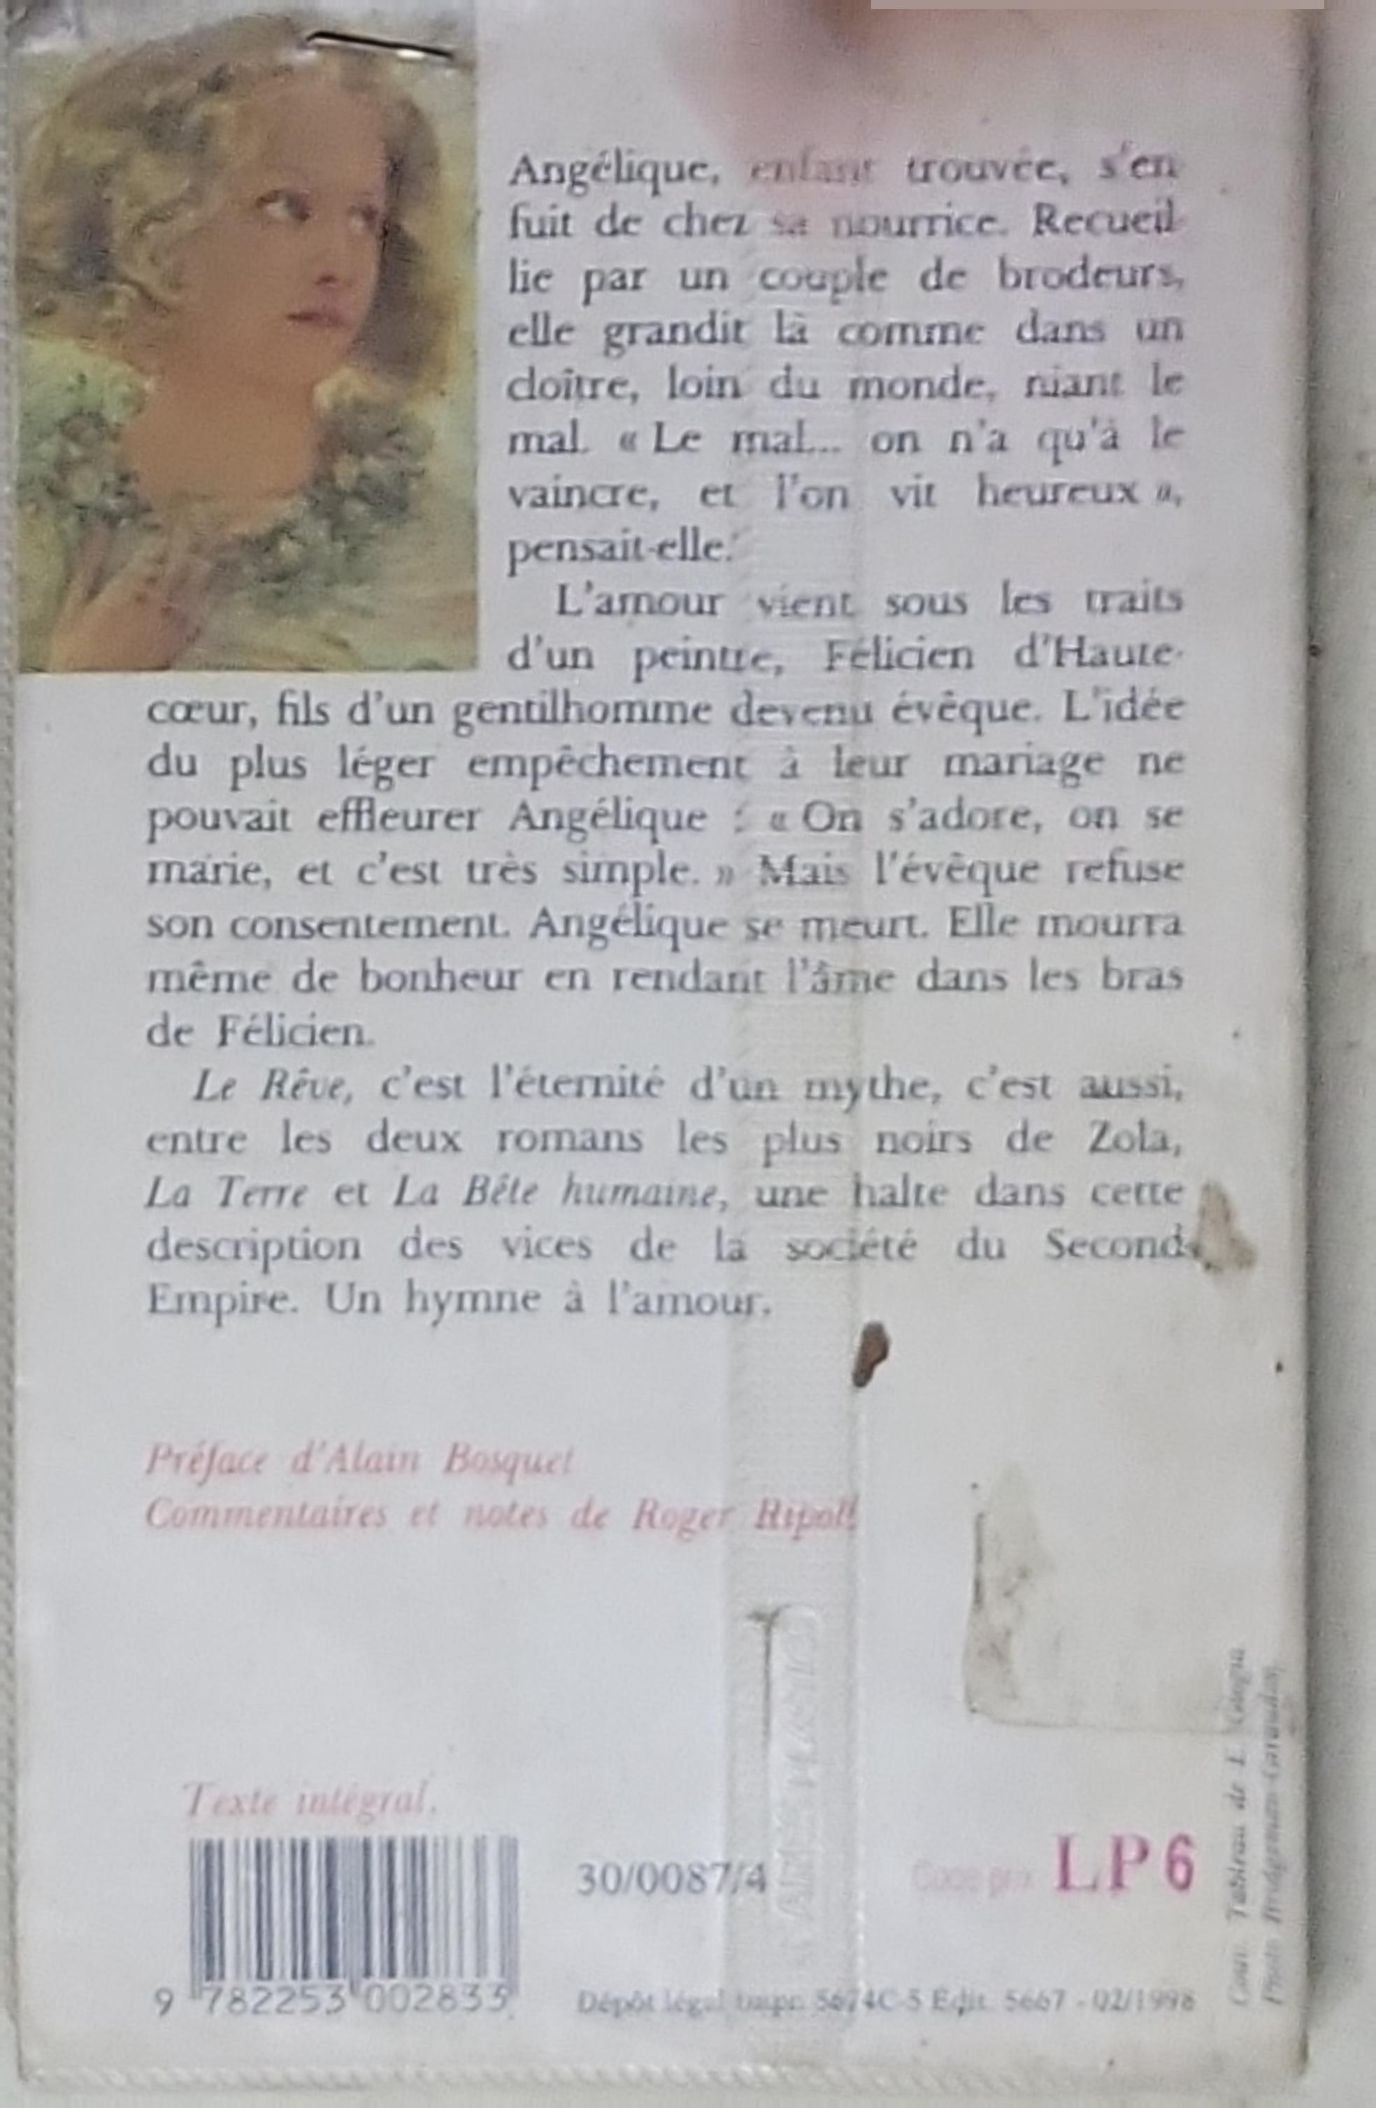 Angélique, enfant trouvée, s'en
fuit de chez sa nourrice. Recueil-
lie par un couple de brodeurs,
elle grandit là comme dans un
cloître, loin du monde, niant le
mal. « Le mal... on n'a qu'à le
vaincre, et l'on vit heureux »,
pensait-elle.
L'amour vient sous les traits
d'un peintre, Félicien d'Haute-
cœur, fils d'un gentilhomme devenu évêque. L'idée
du plus léger empêchement à leur mariage ne
pouvait effleurer Angélique : « On s'adore, on se
marie, et c'est très simple. » Mais l'évêque refuse
son consentement. Angélique se meurt. Elle mourra
même de bonheur en rendant l'âme dans les bras
de Félicien.
Le Rêve, c'est l'éternité d'un mythe, c'est aussi,
entre les deux romans les plus noirs de Zola,
La Terre et La Bête humaine, une halte dans cette
description des vices de la société du Second
Empire. Un hymne à l'amour.
Préface d'Alain Bosquet
Commentaires et notes de Roger Ripoll
Texte intégral.
30/0087/4
Code prix LP 6
9 782253 002833
Dépôt légal Impr. 5674C-5 Édit. 5667 - 02/1998
Couv. Tableau de L.
Photo Bridgeman-Giraudon